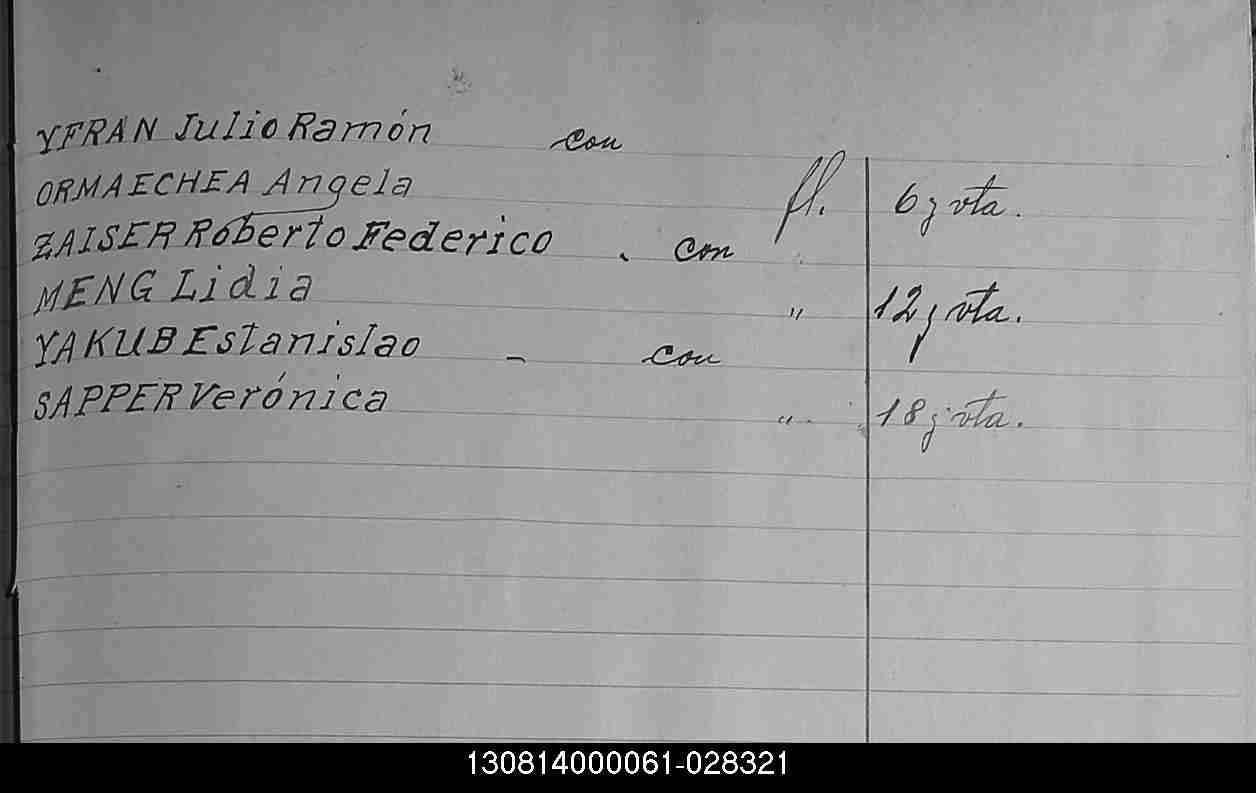 YFRAN Julio Ramón con
ORMAECHEA Angela fl. 6 y vta.
ZAISER Roberto Federico . con
MENG Lidia " 12 y vta.
YAKUB Estanislao - con
SAPPER Verónica " 18 y vta.
130814000061-028321